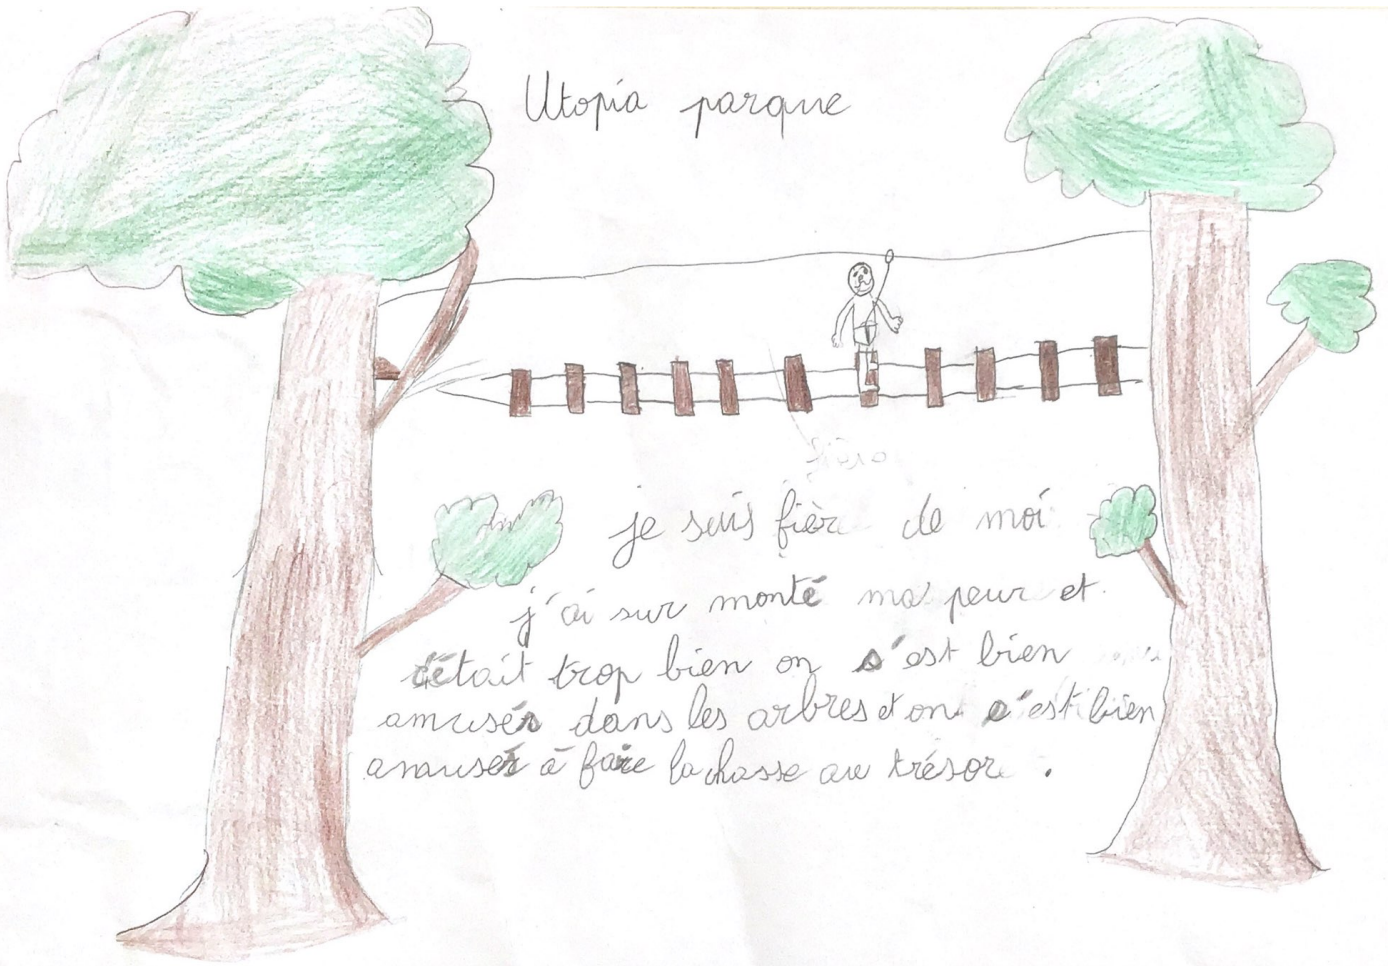 Utopia parque
je suis fièr de moi
j'ai sur monté ma peur et
c'était trop bien on s'est bien
amusér dans les arbres et on s'est bien
amusér à faire la chasse au trésor.